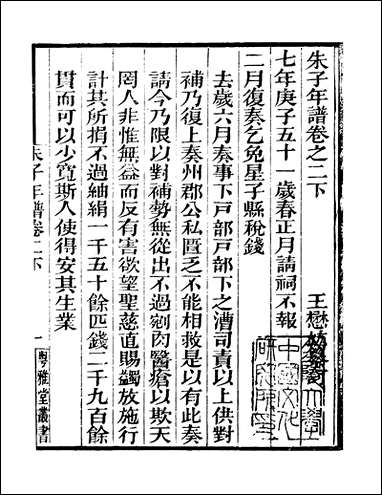 朱子年譜卷之二下
王懋
七年庚子五十一歲春正月請祠不報
二月復奏乞免星子縣稅錢
去歲六月奏事下戸部戸部下之漕司責以上供對
補乃復上奏州郡公私匱乏不能相救是以有此奏
請今乃限以對補勢無從出不過剜肉醫瘡以欺天
罔人非惟無益而反有害欲望聖慈直賜蠲放施行
計其所捐不過紬絹一千五十餘匹錢二千九百餘
貫而可以少寬斯人使得安其生業
朱子年譜卷二下
一
粤雅堂叢書
中國文化
研究所